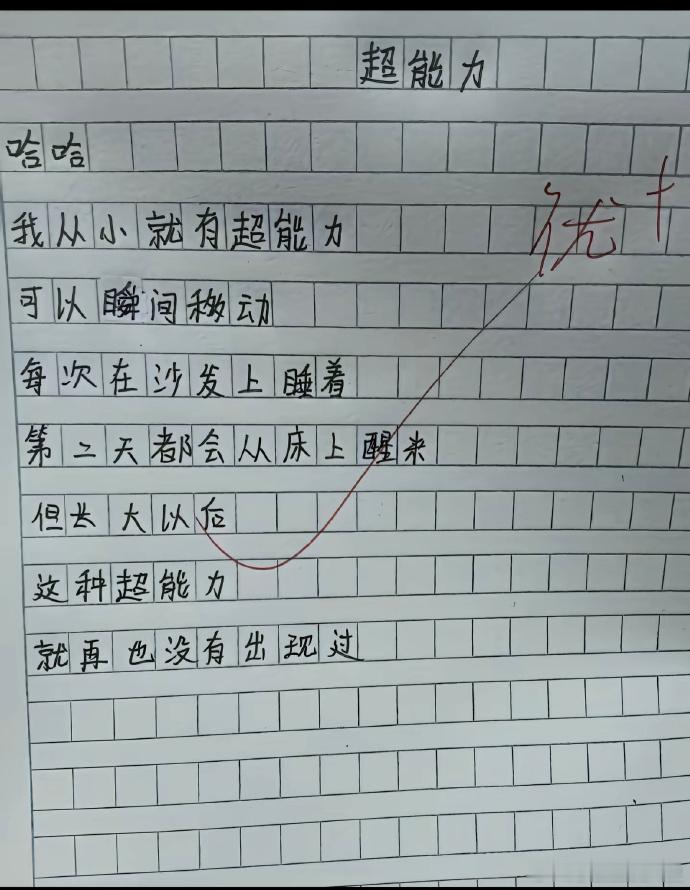 超能力
哈哈
优+
我从小就有超能力
可以瞬间移动
每次在沙发上睡着
第二天都会从床上醒来
但长大以后
这种超能力
就再也没有出现过